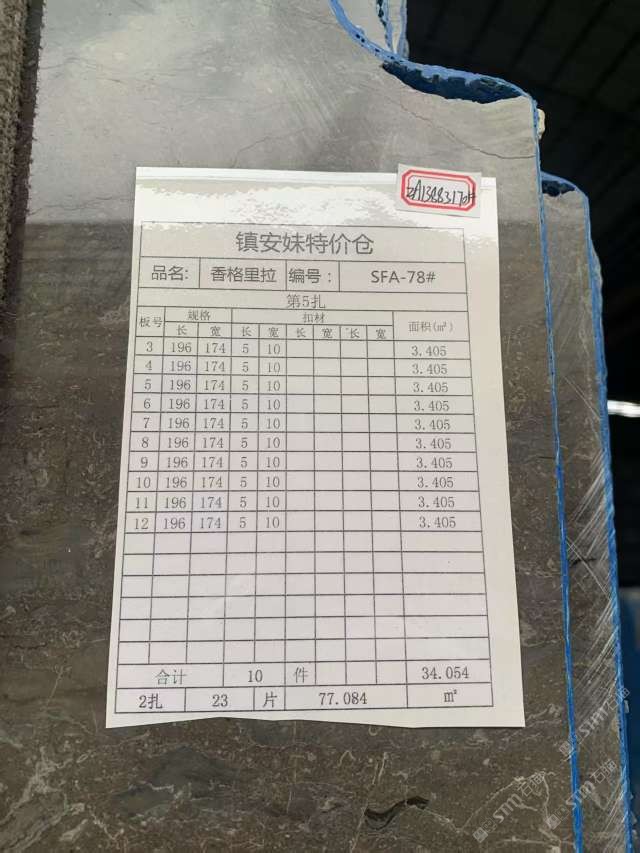 ZA1388317#
镇安妹特价仓
品名: 香格里拉 编号: SFA-78#
第5扎
板号 规格 扣材 面积(㎡)
长 宽 长 宽 长 宽 长 宽
3 196 174 5 10 3.405
4 196 174 5 10 3.405
5 196 174 5 10 3.405
6 196 174 5 10 3.405
7 196 174 5 10 3.405
8 196 174 5 10 3.405
9 196 174 5 10 3.405
10 196 174 5 10 3.405
11 196 174 5 10 3.405
12 196 174 5 10 3.405
合计 10 件 34.054
2扎 23 片 77.084 ㎡